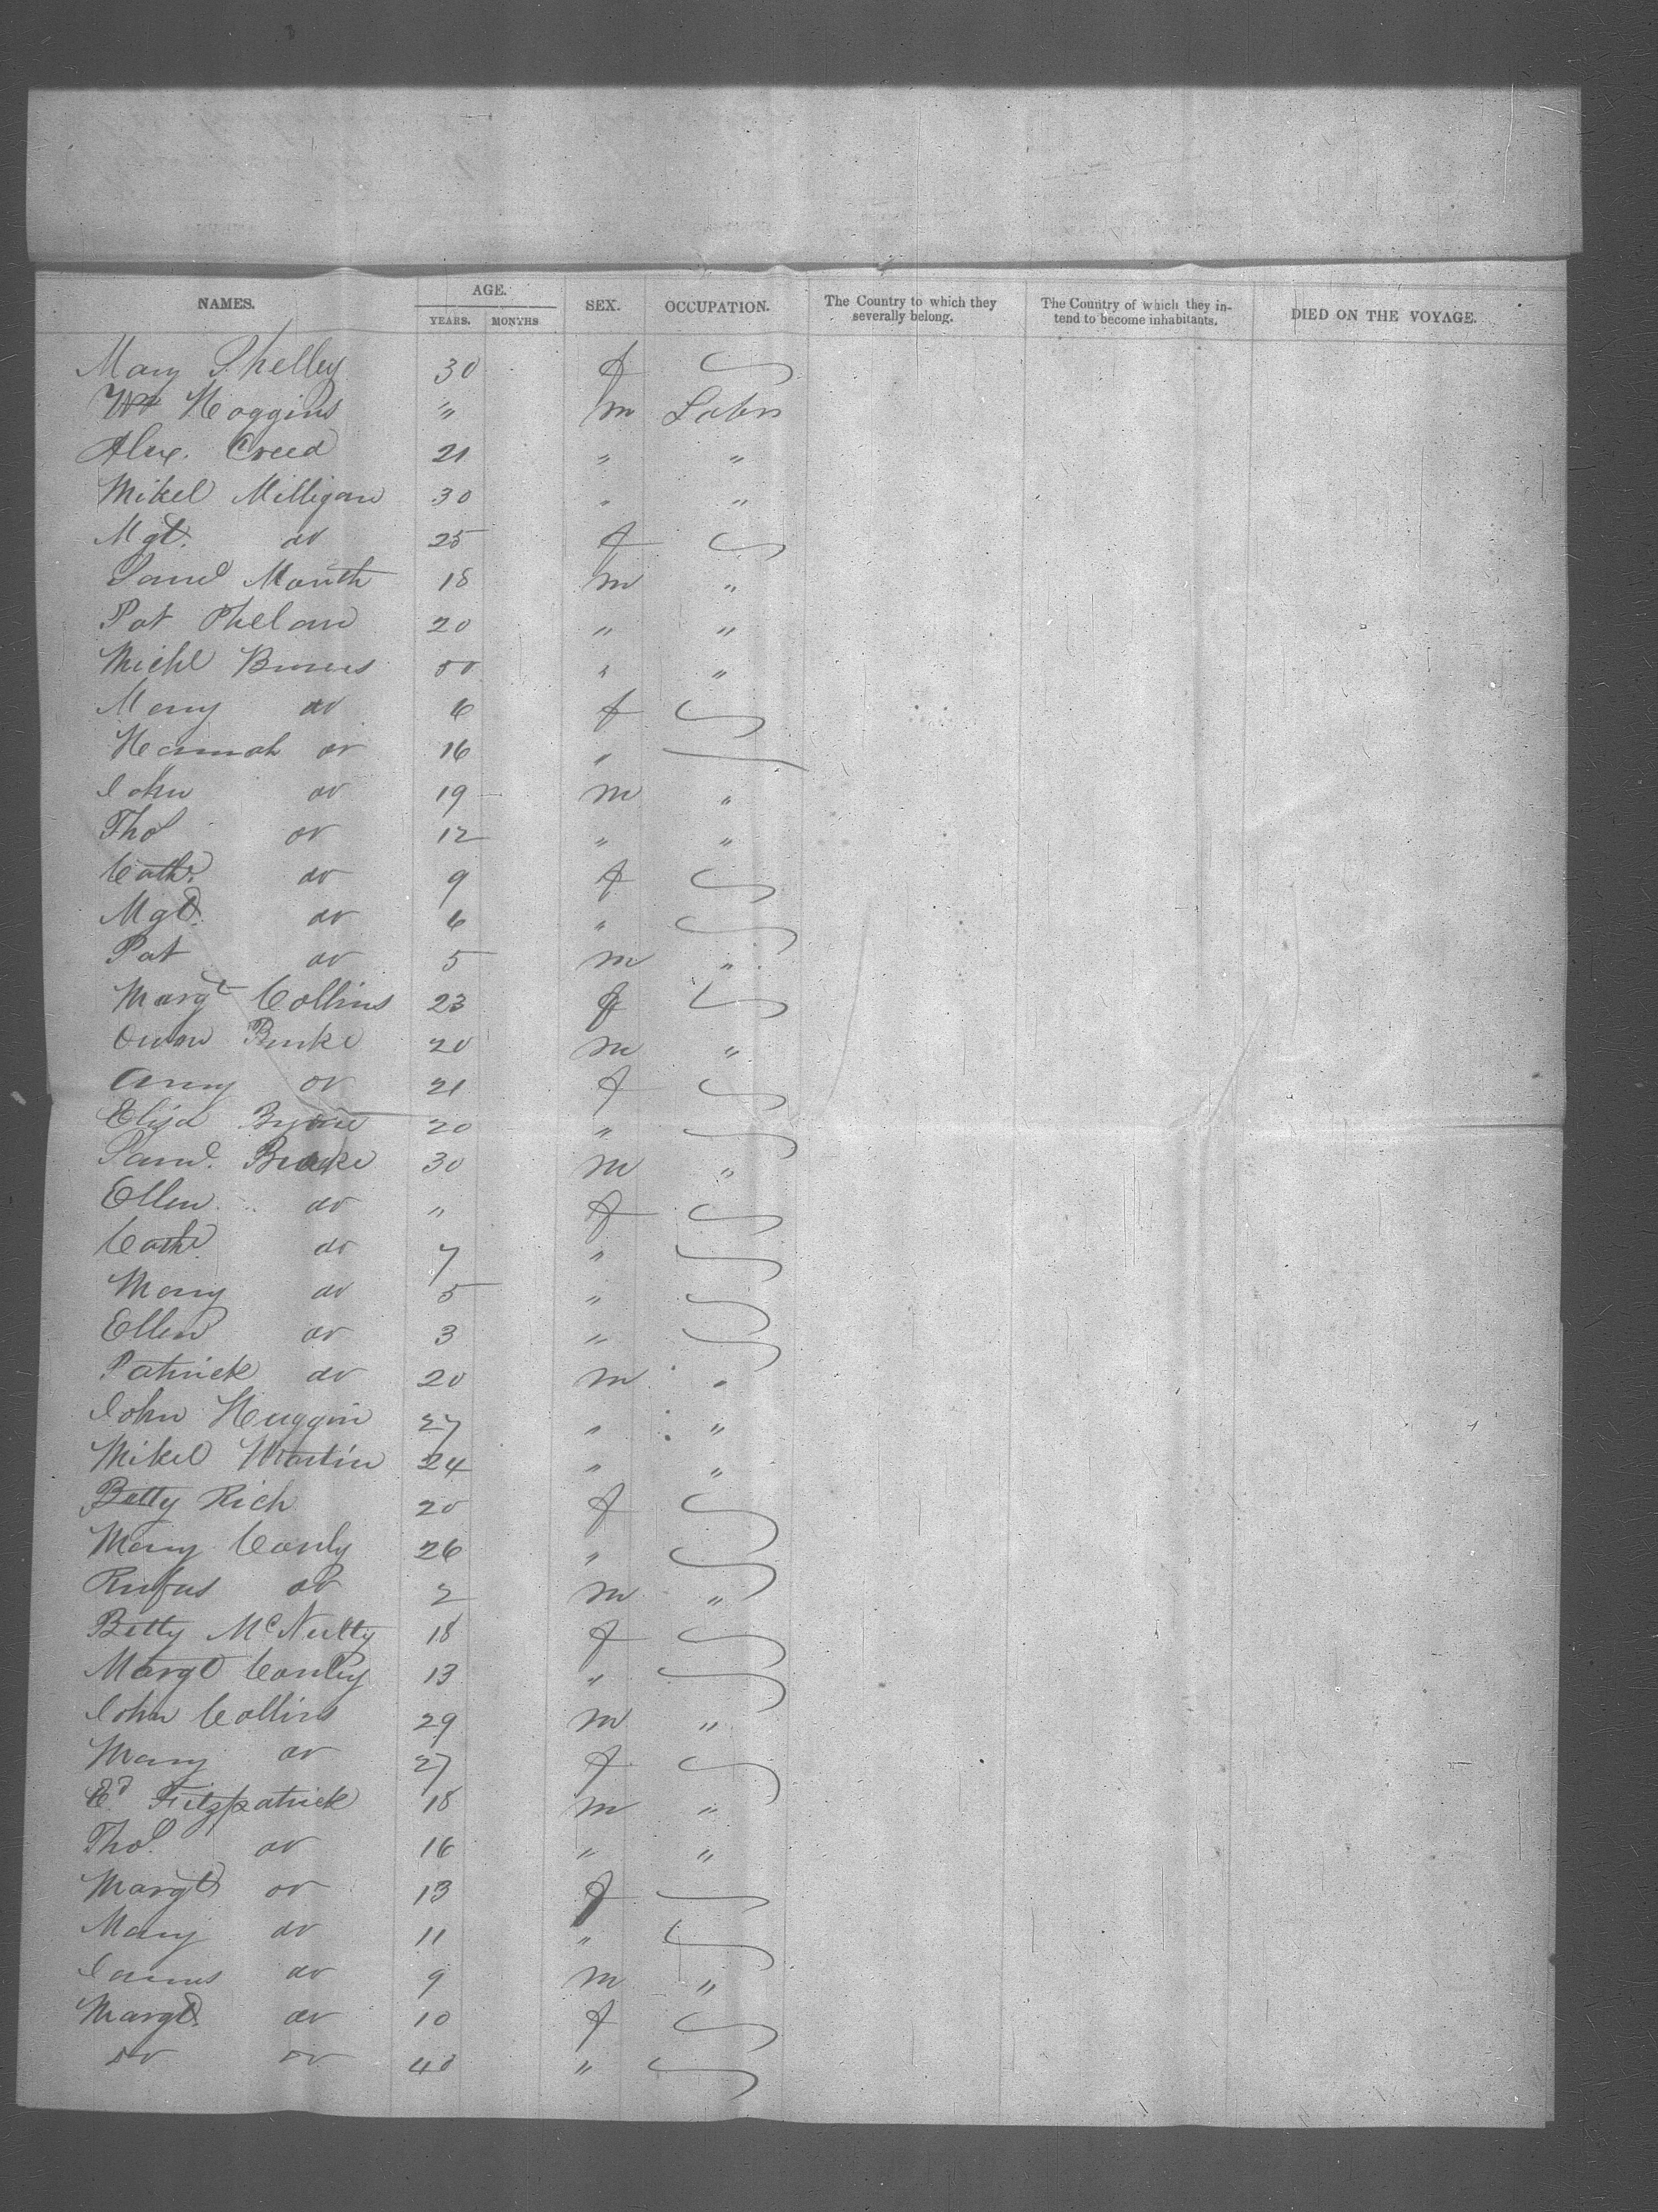 NAMES. AGE. SEX. OCCUPATION. The Country to which they severally belong. The Country of which they intend to become inhabitants. DIED ON THE VOYAGE.
YEARS. MONTHS
Mary Shelley 30 f
Wm Hoggins " m Labr
Alex. Creed 21 " "
Mikel Milligan 30 " "
Mgt. do 25 f
Saml 18 m "
Pat Phelan 20 " "
Michl Burns 50 " "
Mary do 6 f
Hannah do 16 "
John do 19 m "
Thos do 12 " "
Cath. do 9 f
Mgt. do 6 "
Pat do 5 m "
Margt Collins 23 f
Owen Burke 20 m "
Anny do 21 f
Eliza Byrne 20 "
Saml. Burke 30 m "
Ellen do " f
Cath. do 7 "
Mary do 5 "
Ellen do 3 "
Patrick do 20 m "
John Huggin 27 " "
Mikel Martin 24 " "
Betty Rich 20 f
Mary Conly 26 "
Rufus do 2 m "
Betty McNulty 18 f
Margt Conley 13 "
John Collins 29 m "
Mary do 27 f
Ed Fitzpatrick 18 m "
Thos. do 16 " "
Margt do 13 f
Mary do 11 "
James do 9 m "
Margt. do 10 f
do do 40 "